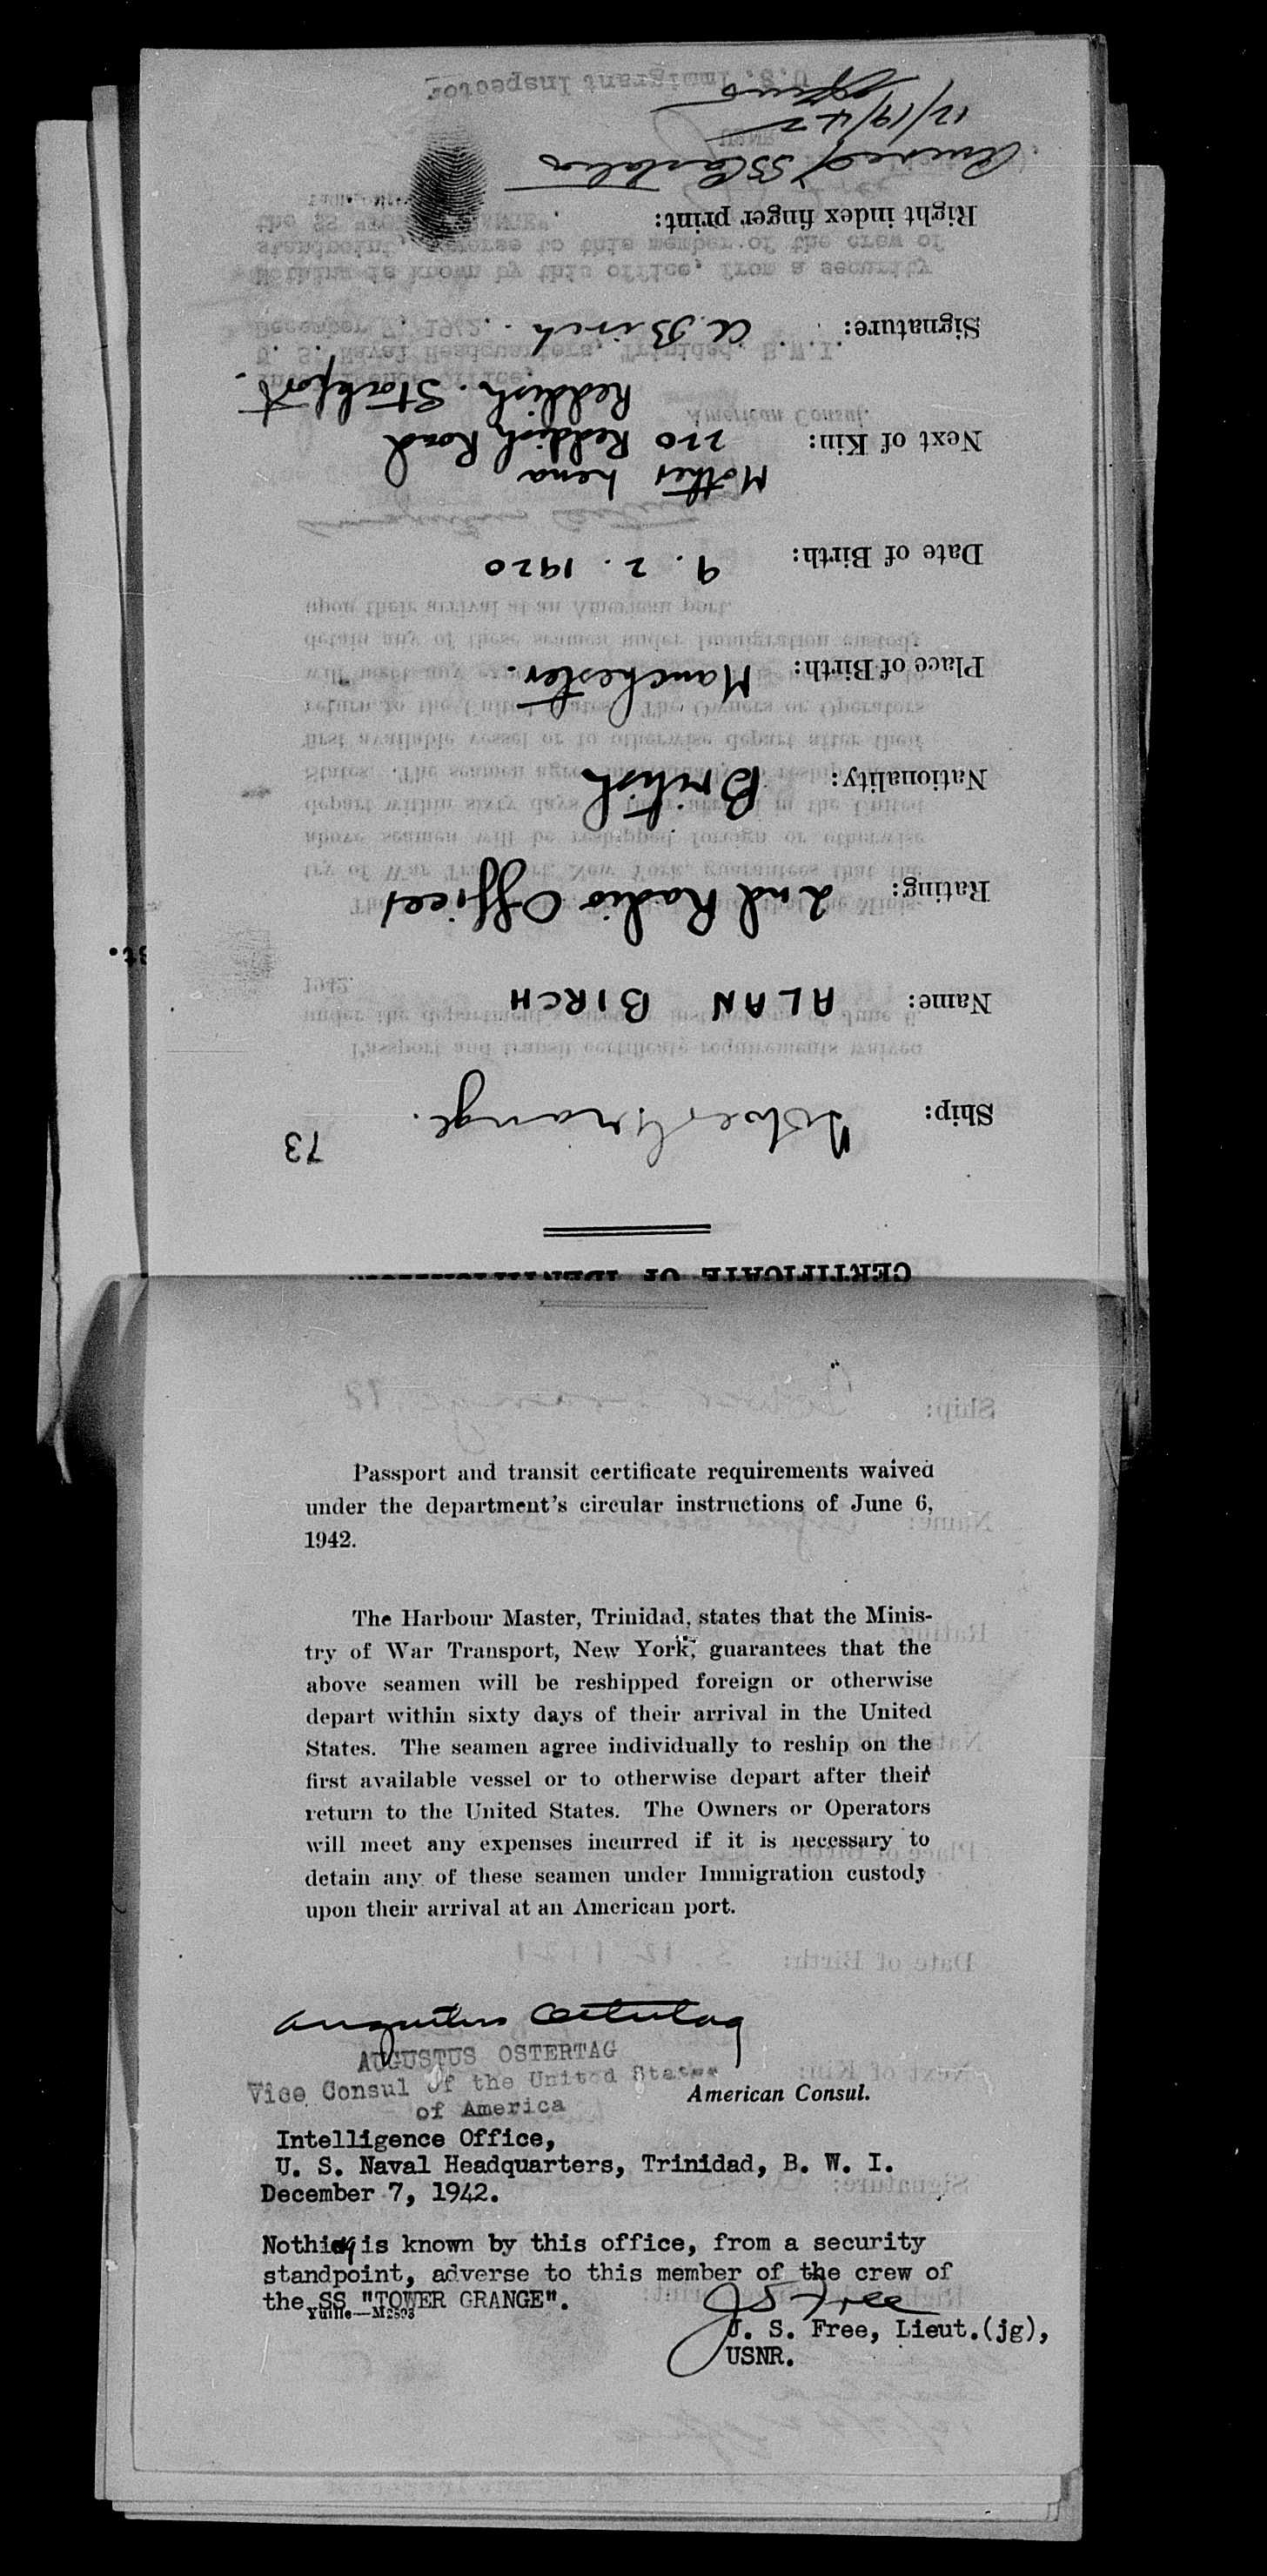 CERTIFICATE OF IDENTIFICATION
73
Ship: Tower Grange.
Name: ALAN BIRCH
Rating: 2nd Radio Officer
Nationality: British
Place of Birth: Manchester.
Date of Birth: 9. 2. 1920
Mother Lena
Next of Kin: 220 Reddish Road
Reddish. Stockport.
Signature: A. Birch.
Right index finger print:
12/19/42
U.S. Immigrant Inspector
st.
Passport and transit certificate requirements waived
under the department's circular instructions of June 6,
1942.
The Harbour Master, Trinidad, states that the Minis-
try of War Transport, New York, guarantees that the
above seamen will be reshipped foreign or otherwise
depart within sixty days of their arrival in the United
States. The seamen agree individually to reship on the
first available vessel or to otherwise depart after their
return to the United States. The Owners or Operators
will meet any expenses incurred if it is necessary to
detain any of these seamen under Immigration custody
upon their arrival at an American port.
Augustus Ostertag
AUGUSTUS OSTERTAG
Vice Consul of the United States
of America
American Consul.
Intelligence Office,
U. S. Naval Headquarters, Trinidad, B. W. I.
December 7, 1942.
Nothing is known by this office, from a security
standpoint, adverse to this member of the crew of
the SS "TOWER GRANGE".
Yuille—M2593
J S Free
J. S. Free, Lieut.(jg),
USNR.